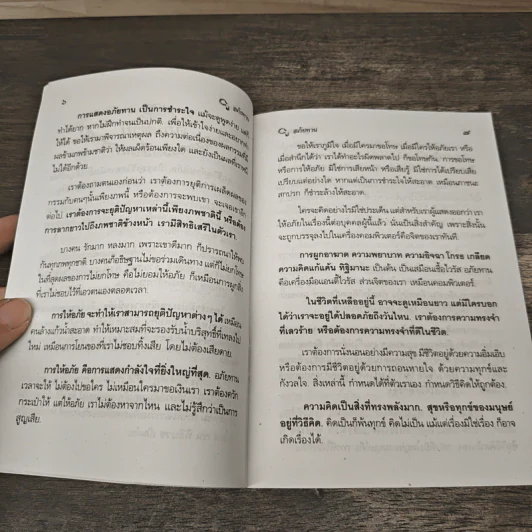 ๖
อภัยทาน
การแสดงอภัยทาน เป็นการชำระใจ แม้จะพูดง่าย แต่
ทำได้ยาก หากไม่ฝึกทำจนเป็นปกติ เพื่อให้เข้าใจง่ายและอยาก
ให้ ขอให้เรามาพิจารณาเหตุผล ถึงความต่อเนื่องของผลกรรมที่มี
ผลข้ามภพข้ามชาติว่า ให้ผลเผ็ดร้อนเพียงใด และยังเป็นผลที่
เราต้องถามตนเองก่อนว่า เราต้องการยุติการเผล็ดผลของ
กรรมกับคนๆนั้นเพียงภพนี้ หรือต้องการจะพบเขา และจองเวรเขาอีก
ต่อไป เราต้องการจะยุติปัญหาเหล่านี้เพียงภพชาตินี้ หรือต้อง
การลากยาวไปถึงภพชาติข้างหน้า เรามีสิทธิเสรีในตัวเรา
บางคน รักมาก หลงมาก เพราะเขาดีมาก ก็ปรารถนาให้พบ
กันทุกภพทุกชาติ บางคนก็อธิษฐานไม่ขอร่วมเดินทาง แต่ก็ไม่ยกโทษ
ในที่สุดผลของการไม่ยกโทษ คือไม่ยอมให้อภัย ก็เหมือนการผูกสิ่ง
ที่เราไม่ชอบไว้ที่เอวตนเองตลอดเวลา
การให้อภัย จะทำให้เราสามารถยุติปัญหาต่างๆ ได้ เหมือน
คนล้างแก้วน้ำสะอาด ทำให้เหมาะสมที่จะรองรับน้ำบริสุทธิ์ที่เทลงไป
ใหม่ เหมือนการโยนของที่เราไม่ชอบทิ้งเสีย โดยไม่ต้องเสียดาย
การให้อภัย คือการแสดงกำลังใจที่ยิ่งใหญ่ที่สุด. อภัยทาน
เวลาจะให้ ไม่ต้องไปขอใคร ไม่เหมือนใครมาขอเงินเรา เราต้องควัก
กระเป๋าให้ แต่ให้อภัย เราไม่ต้องหาจากไหน และไม่รู้สึกว่าเป็นการ
สูญเสีย.
อภัยทาน
๗
ขอให้เราภูมิใจ เมื่อมีใครมาขอโทษ เมื่อมีใครให้อภัยเรา หรือ
เมื่อสำนึกได้ว่า เราได้ทำอะไรผิดพลาดไป ก็ขอโทษกัน การขอโทษ
หรือการให้อภัย มิใช่การเสียหน้า หรือเสียรู้ มิใช่การได้เปรียบเสีย
เปรียบแต่อย่างใด หากแต่เป็นการชำระใจให้สะอาด เหมือนภาชนะ
สกปรก ก็ชำระล้างให้สะอาด
ใครจะคิดอย่างไรมิใช่ประเด็น แต่สำหรับเราผู้แสดงออกว่า เรา
ให้อภัยในเรื่องนี้ต่อบุคคลผู้นี้แล้ว นั่นเป็นสิ่งสำคัญ เพราะสิ่งนั้น
จะถูกบรรจุลงไปในเครื่องคอมพิวเตอร์คือจิตของเราทันที
การผูกอาฆาต ความพยาบาท ความอิจฉา โกรธ เกลียด
ความคิดแก้แค้น ทิฐิมานะ เป็นต้น เป็นเสมือนเชื้อไวรัส อภัยทาน
คือเครื่องมือแอนตี้ไวรัส ส่วนจิตของเรา เหมือนคอมพิวเตอร์.
ในชีวิตที่เหลืออยู่นี้ อาจจะดูเหมือนยาว แต่มีใครบอก
ได้ว่าเราจะอยู่ได้ปลอดภัยถึงวันไหน. เราต้องการความทรงจำ
ที่เลวร้าย หรือต้องการความทรงจำที่ดีในชีวิต.
เราต้องการนั่งนอนอย่างมีความสุข มีชีวิตอยู่ด้วยความอิ่มเอิบ
หรือต้องการมีชีวิตอยู่ด้วยการถอนหายใจ ด้วยความทุกข์และ
กังวลใจ. สิ่งเหล่านี้ กำหนดได้ที่ตัวเราเอง กำหนดวิธีคิดให้ถูกต้อง.
ความคิดเป็นสิ่งที่ทรงพลังมาก. สุขหรือทุกข์ของมนุษย์
อยู่ที่วิธีคิด. คิดเป็นก็พ้นทุกข์ คิดไม่เป็น แม้แต่เรื่องมิใช่เรื่อง ก็อาจ
เกิดเรื่องได้.